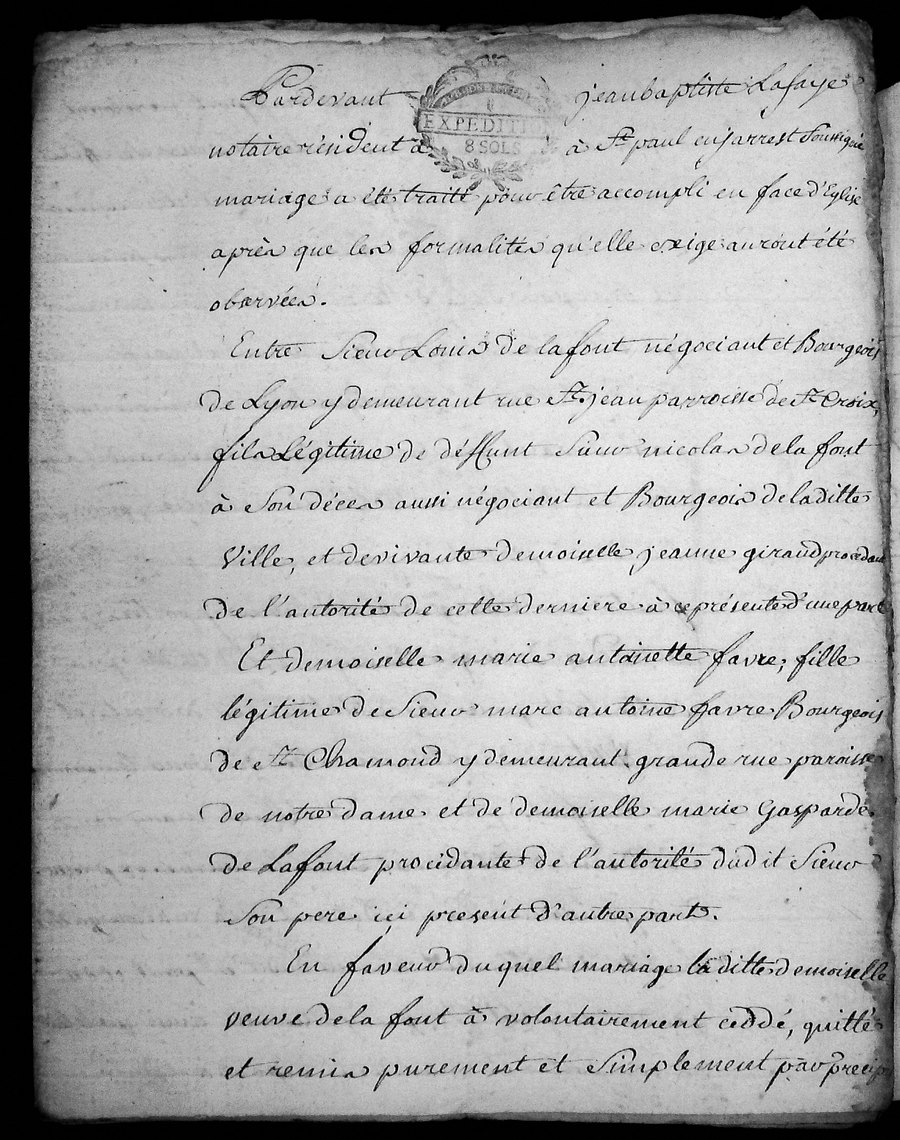 Pardevant jeanbaptiste Lafaye
EXPEDITI
8 SOLS
notaire résident à à St. paul enjarrest Soussigné
mariage a été traité pour être accompli en face d'Eglise
après que les formalités qu'elle exige auront été
observées.
Entre Sieur Louis de lafont négociant et Bourgeois
de Lyon y demeurant rue St. jean parroisse de St. Croix,
fils Légitime de déffunt Sieur nicolas de la font
à Son décès aussi négociant et Bourgeois de laditte
Ville, et de vivante demoiselle, jeanne giraud procédant
de l'autorité de celle derniere à ce présente d'une part
Et demoiselle marie antoinette favre, fille
légitime de Sieur marc antoine favre Bourgeois
de St. Chamond y demeurant grande rue paroisse
de notre dame et de demoiselle marie Gasparde
de Lafont procédante de l'autorité dudit Sieur
Son pere ici present d'autre part.
En faveur duquel mariage la ditte demoiselle
veuve de la font à volontairement ceddé, quitté
et remis purement et Simplement par précip